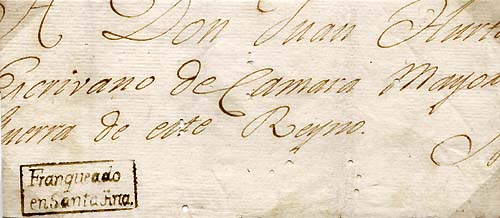 A Don Juan Hurta
Escrivano de Camara Mayor
Guerra de este Reyno.
Franqueado
en Santa Ana.